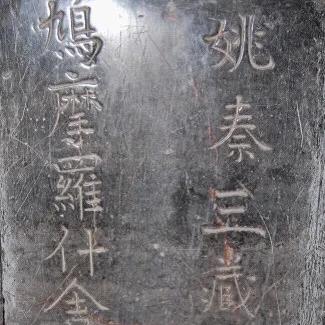 姚秦三藏
鳩摩羅什